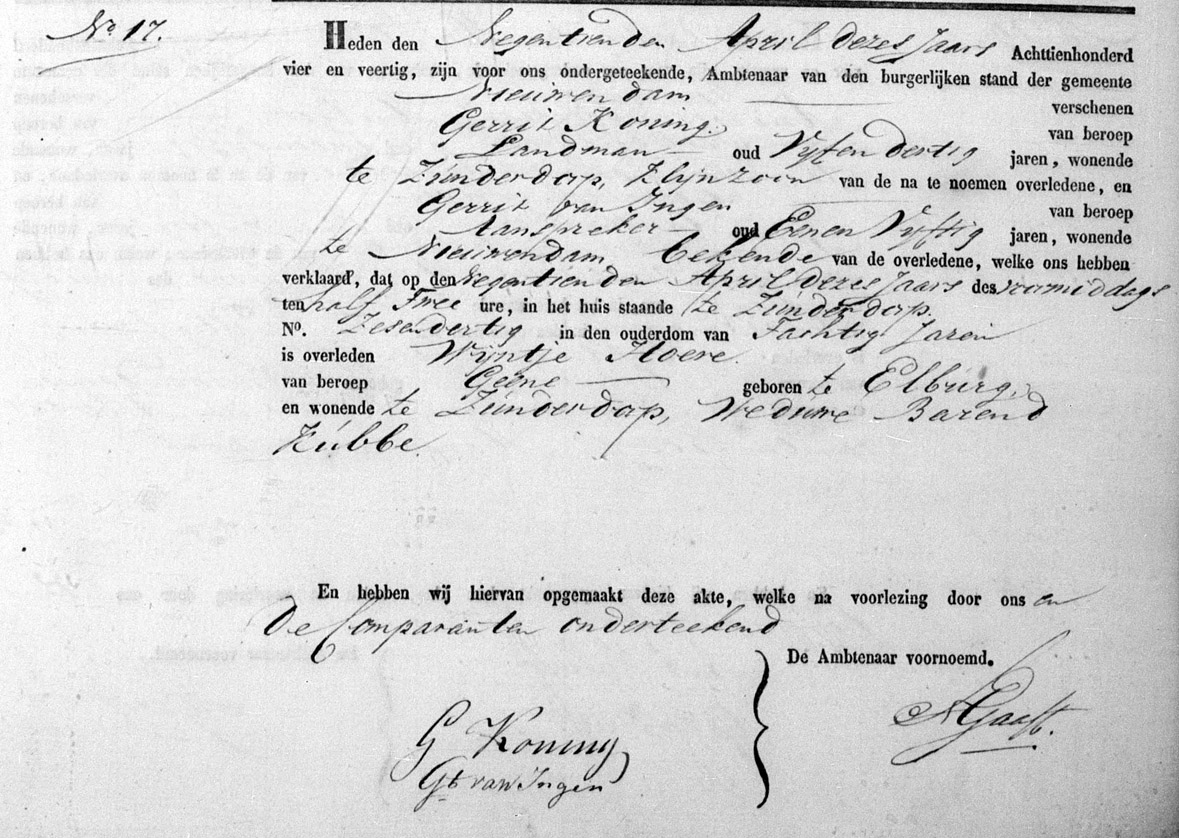 No. 17.
Heden den Negentienden April dezes Jaars Achttienhonderd
vier en veertig, zijn voor ons ondergeteekende, Ambtenaar van den burgerlijken stand der gemeente
Nieuwendam verschenen
Gerrit Koning. van beroep
Landman oud Vijf en dertig jaren, wonende
te Zúnderdorp, Zijn zoon van de na te noemen overledene, en
Gerrit van Ingen van beroep
Aanspreker oud Eenen Vijftig jaren, wonende
te Nieuwendam bekende van de overledene, welke ons hebben
verklaard, dat op den Negentienden April dezes Jaars des voormiddags
ten half Twee ure, in het huis staande te Zúnderdorp.
No. Zesendertig in den ouderdom van Tachtig Jaren
is overleden Wijntje Hoeve.
van beroep Geene geboren te Elburg,
en wonende te Zúnderdorp, Weduwe Barend
Kúbbe.
En hebben wij hiervan opgemaakt deze akte, welke na voorlezing door ons en
de Comparanten onderteekend
De Ambtenaar voornoemd.
G Koning
Gt van Ingen